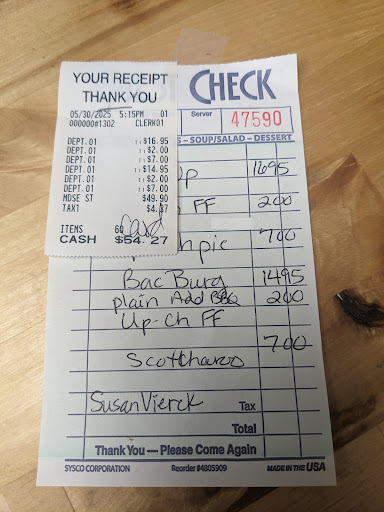 YOUR RECEIPT
THANK YOU
05/30/2025 5:15PM 01
000000#1302 CLERK01
DEPT.01 T1 $16.95
DEPT.01 T1 $2.00
DEPT.01 T1 $7.00
DEPT.01 T1 $14.95
DEPT.01 T1 $2.00
DEPT.01 T1 $7.00
MDSE ST $49.90
TAX1 $4.37
ITEMS 6Q
Card
CASH $54.27
CHECK
Server
47590
S - SOUP/SALAD - DESSERT
1695
FF 200
700
Bac Burg 1495
plain Add BBQ 200
Up-Ch FF
700
Susan Vierck Tax
Total
Thank You — Please Come Again
SYSCO CORPORATION Reorder #4805909 MADE IN THE USA